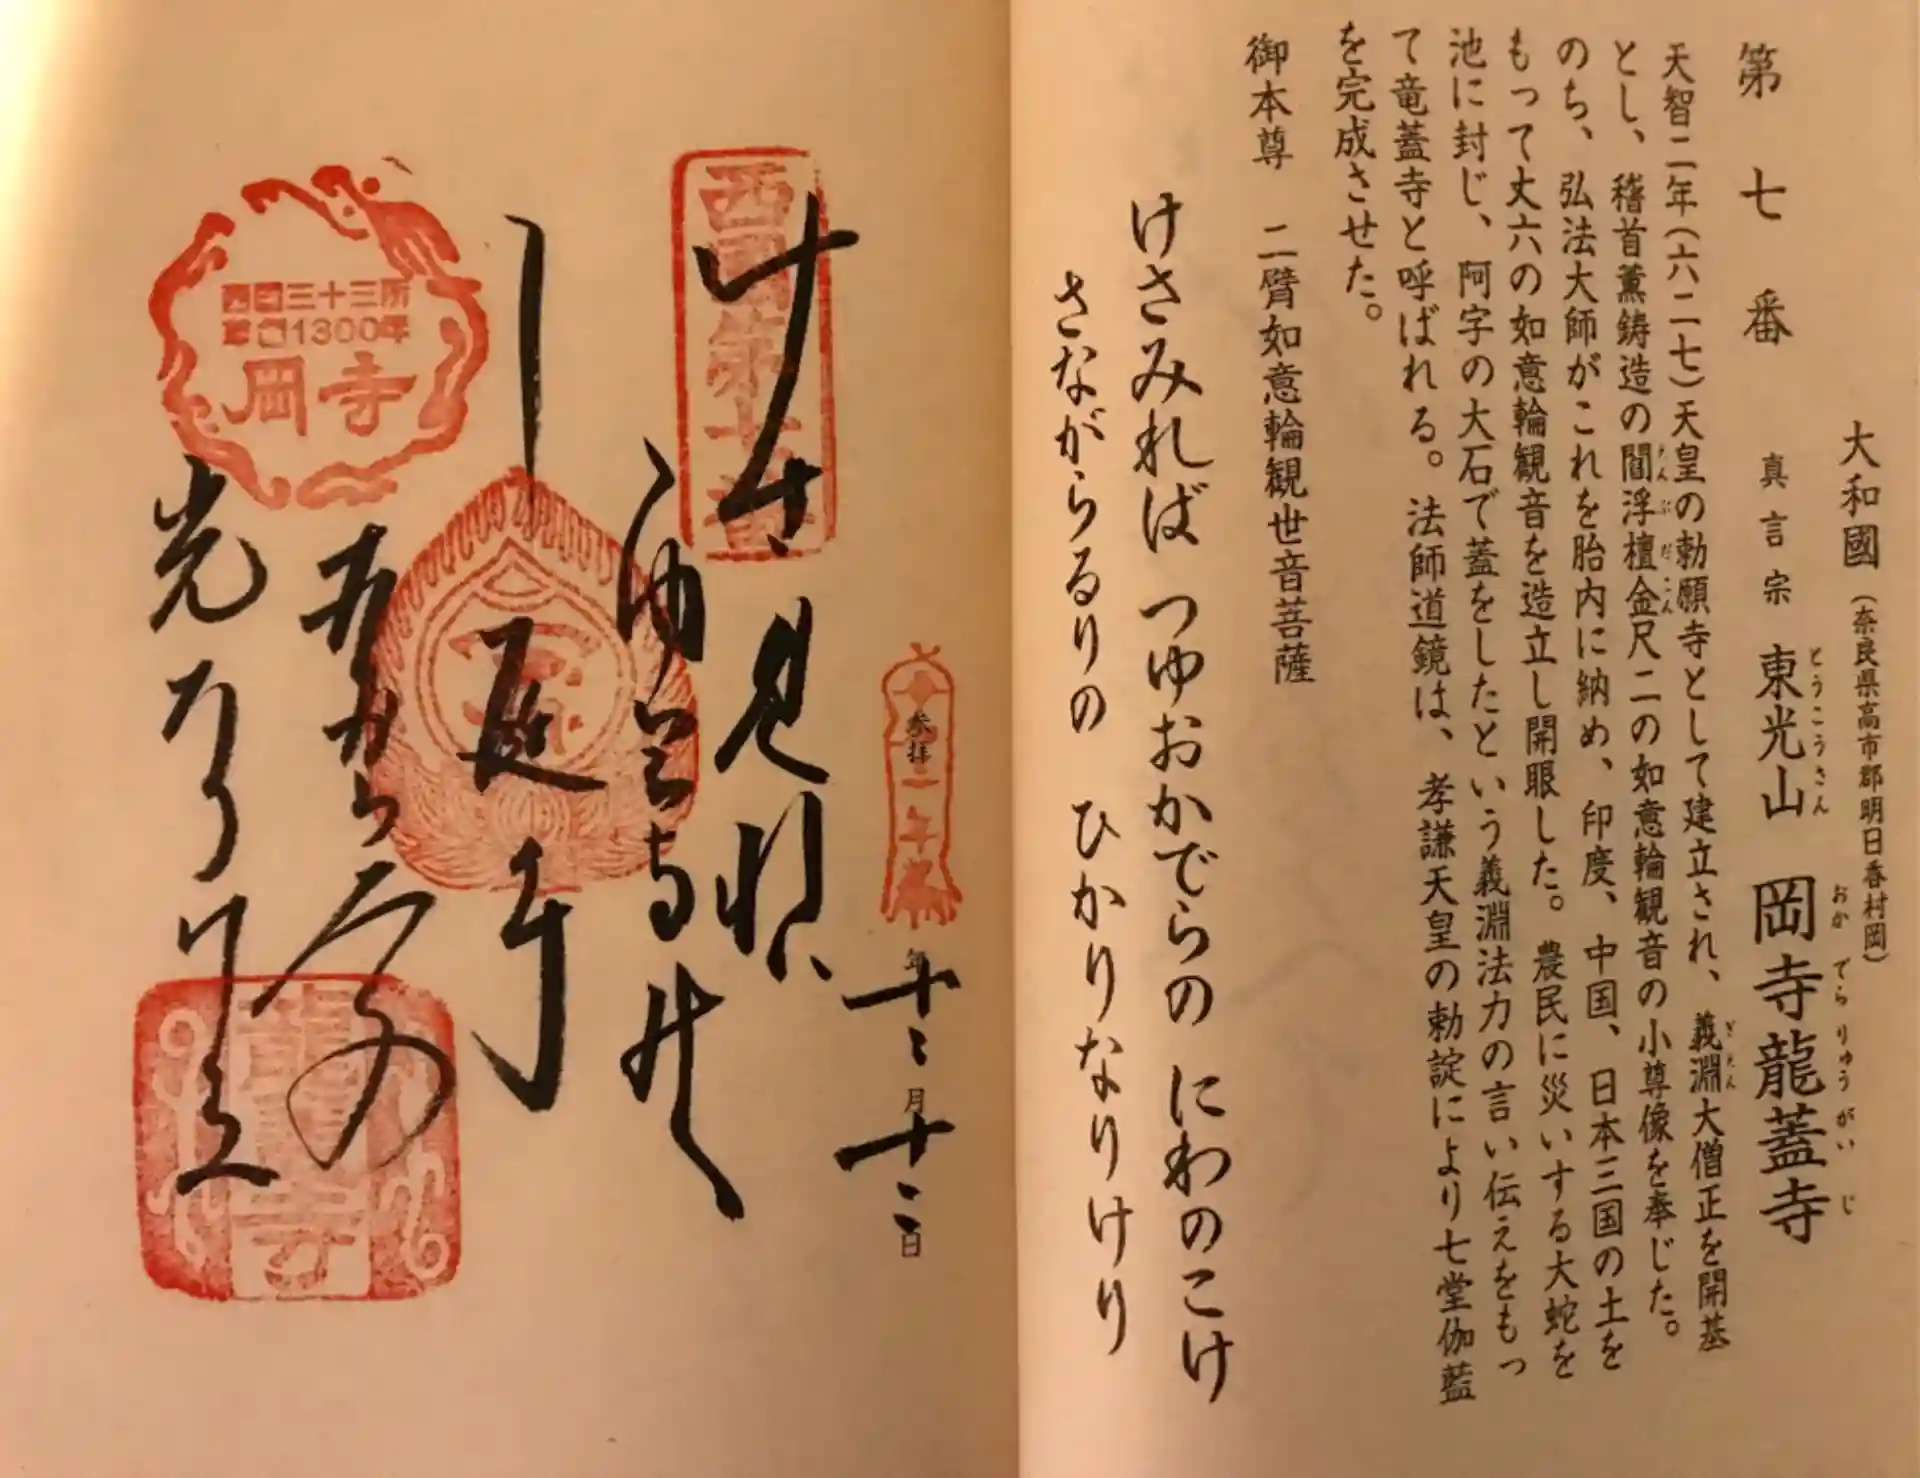 大和國（奈良県高市郡明日香村岡）
真言宗 東光山 岡寺龍蓋寺
とうこうさん おかでらりゅうがいじ
第七番
天智二年（六二七）天皇の勅願寺として建立され、義淵大僧正を開基
ぎえん
とし、稽首薫鋳造の閻浮檀金尺二の如意輪観音の小尊像を奉じた。
えんぶだごん
のち、弘法大師がこれを胎内に納め、印度、中国、日本三国の土を
もって丈六の如意輪観音を造立し開眼した。農民に災いする大蛇を
池に封じ、阿字の大石で蓋をしたという義淵法力の言い伝えをもっ
て竜蓋寺と呼ばれる。法師道鏡は、孝謙天皇の勅諚により七堂伽藍
を完成させた。
御本尊 二臂如意輪観世音菩薩
けさみれば つゆおかでらの にわのこけ
さながらるりの ひかりなりけり
参拝二年
年十二月十二日
西国第七番
けさ見れば
庭
光なり
西国三十三所
草創1300年
岡寺
龍蓋寺